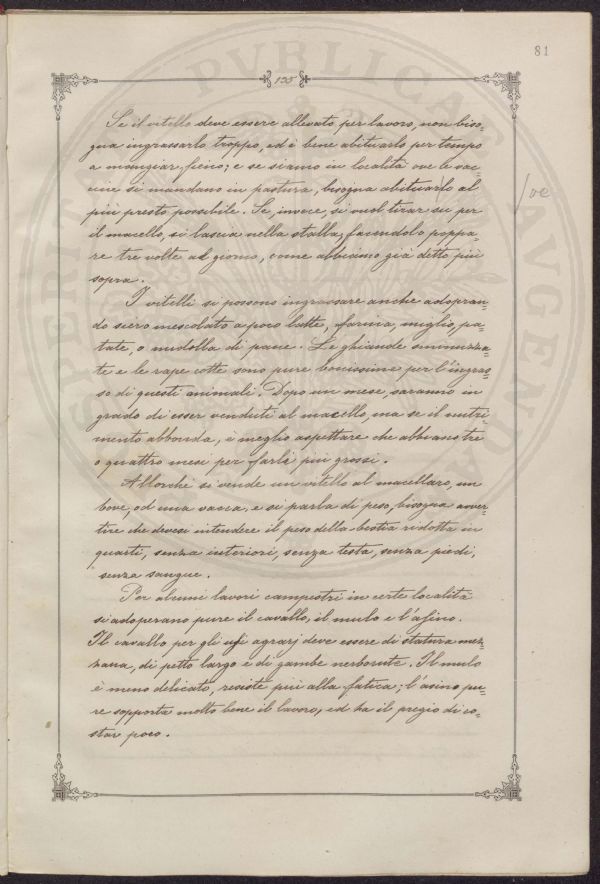 81
135
Se il vitello deve essere allevato per lavoro, non biso=
gna ingrassarlo troppo, ed è bene abituarlo per tempo
a mangiar fieno; e se siamo in località ove le vac=
cine si mandano in pastura, bisogna abituarlo al
/oe
più presto possibile. Se, invece, si vuol tirar su per
il macello, si lascia nella stalla, facendolo poppa=
re tre volte al giorno, come abbiamo già detto più
sopra.
I vitelli si possono ingrassare anche adopran=
do siero mescolato a poco latte, farina, miglio, pa=
tate, o midolla di pane. Le ghiande sminuzza=
te e le rape cotte sono pure bonissime per l'ingras=
so di questi animali. Dopo un mese, saranno in
grado di esser venduti al macello, ma se il nutri=
mento abbonda, è meglio aspettare che abbiano tre
o quattro mesi per farli più grossi.
Allorchè si vende un vitello al macellaro, un
bove, od una vacca, e si parla di peso, bisogna avver=
tire che devesi intendere il peso della bestia ridotta in
quarti, senza interiori, senza testa, senza piedi,
senza sangue.
Per alcuni lavori campestri in certe località
si adoperano pure il cavallo, il mulo e l'asino.
Il cavallo per gli usi agrarj deve essere di statura mez=
zana, di petto largo e di gambe nerborute. Il mulo
è meno delicato, resiste più alla fatica; l'asino pu=
re sopporta molto bene il lavoro, ed ha il pregio di co=
star poco.